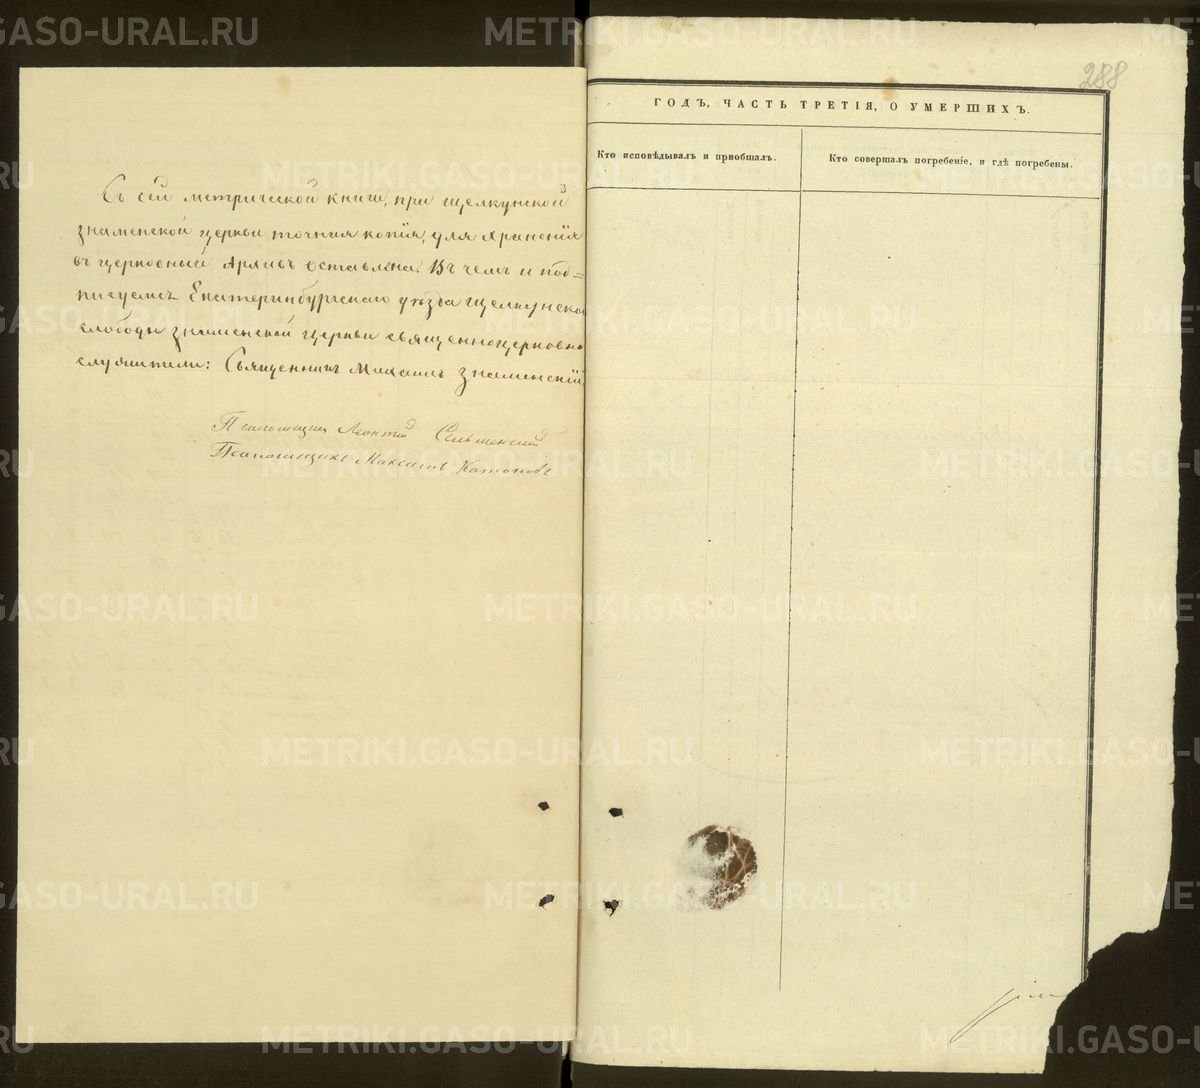 Съ сей метрической книги, при Щелкунской
Знаменской церкви, точная копія, для храненія
въ церковный Архивъ оставлена. Въ чемъ и под=
писуемся Екатеринбургскаго уѣзда Щелкунской
слободы Знаменской церкви священноцерковно
служители: Священникъ Михаилъ Знаменскій
Псаломщикъ Леонтій
Псаломщикъ Максимъ
288
ГОДЪ, ЧАСТЬ ТРЕТІЯ, О УМЕРШИХЪ.
Кто исповѣдывалъ и приобщалъ.
Кто совершалъ погребеніе, и гдѣ погребены.
METRIKI.GASO-URAL.RU